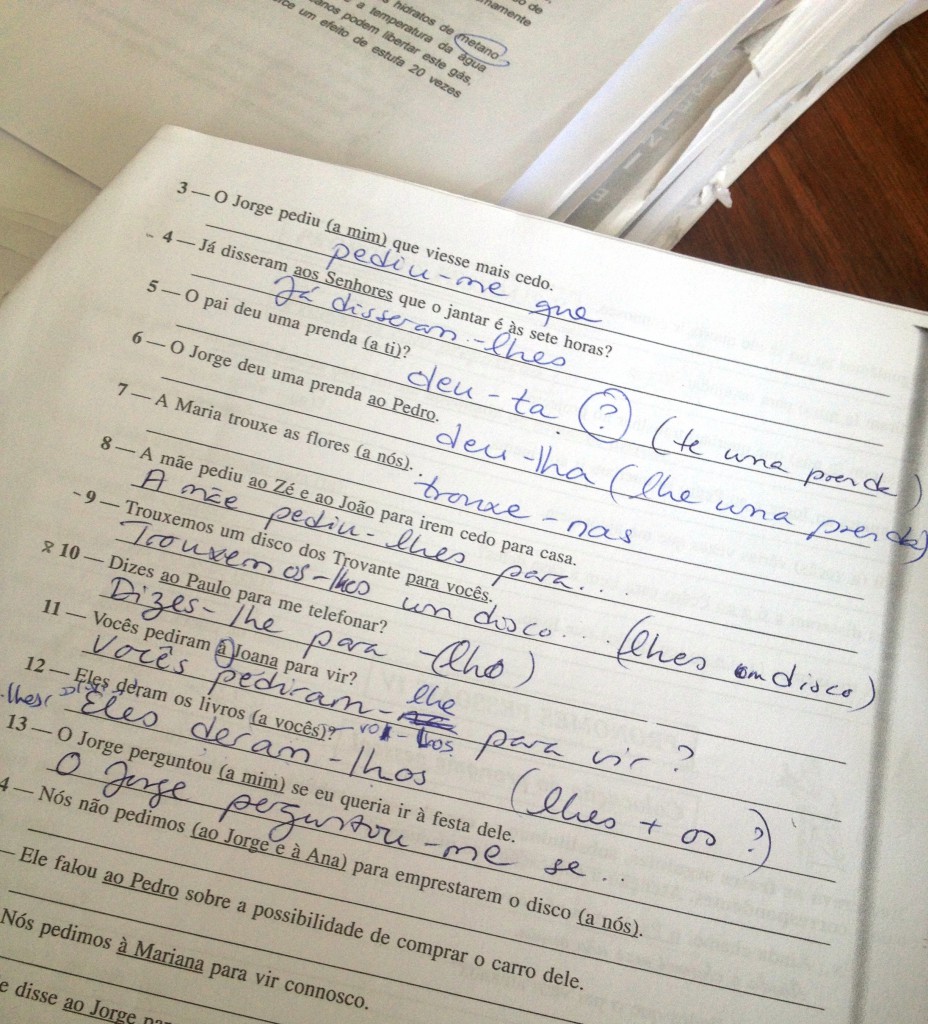 so de
rnamente
s hidratos de metano
e a temperatura da água
anos podem libertar este gás,
rce um efeito de estufa 20 vezes
3 — O Jorge pediu (a mim) que viesse mais cedo.
pediu-me que
4 — Já disseram aos Senhores que o jantar é às sete horas?
Já disseram-lhes
5 — O pai deu uma prenda (a ti)?
deu-ta ? (te una prenda)
6 — O Jorge deu uma prenda ao Pedro.
deu-lha (lhe una prenda)
7 — A Maria trouxe as flores (a nós).
trouxe-nas
8 — A mãe pediu ao Zé e ao João para irem cedo para casa.
A mãe pediu-lhes para...
- 9 — Trouxemos um disco dos Trovante para vocês.
Trouxemos-lhes un disco... (lhes un disco)
10 — Dizes ao Paulo para me telefonar?
Dizes-lhe para -lho)
11 — Vocês pediram à Joana para vir?
Vocês pediram-lhe para vir?
12 — Eles deram os livros (a vocês)?
Eles deram-lhos (lhes + os ?)
13 — O Jorge perguntou (a mim) se eu queria ir à festa dele.
O Jorge perguntou-me se...
4 — Nós não pedimos (ao Jorge e à Ana) para emprestarem o disco (a nós).
— Ele falou ao Pedro sobre a possibilidade de comprar o carro dele.
Nós pedimos à Mariana para vir connosco.
e disse ao Jorge